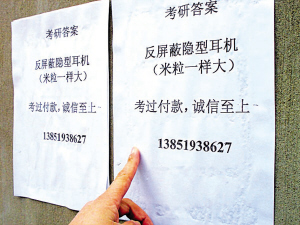 考研答案
反屏蔽隐型耳机
(米粒一样大)
考过付款,诚信至上
13851938627
考研答案
反屏蔽隐型耳机
(米粒一样大)
考过付款,诚信至上
13851938627